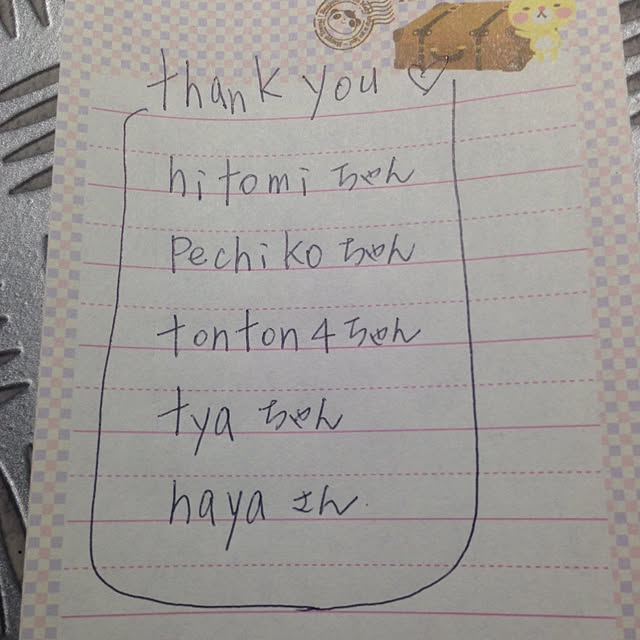 thank you ♡
hitomi ちゃん
pechiko ちゃん
tonton4ちゃん
tya ちゃん
haya さん